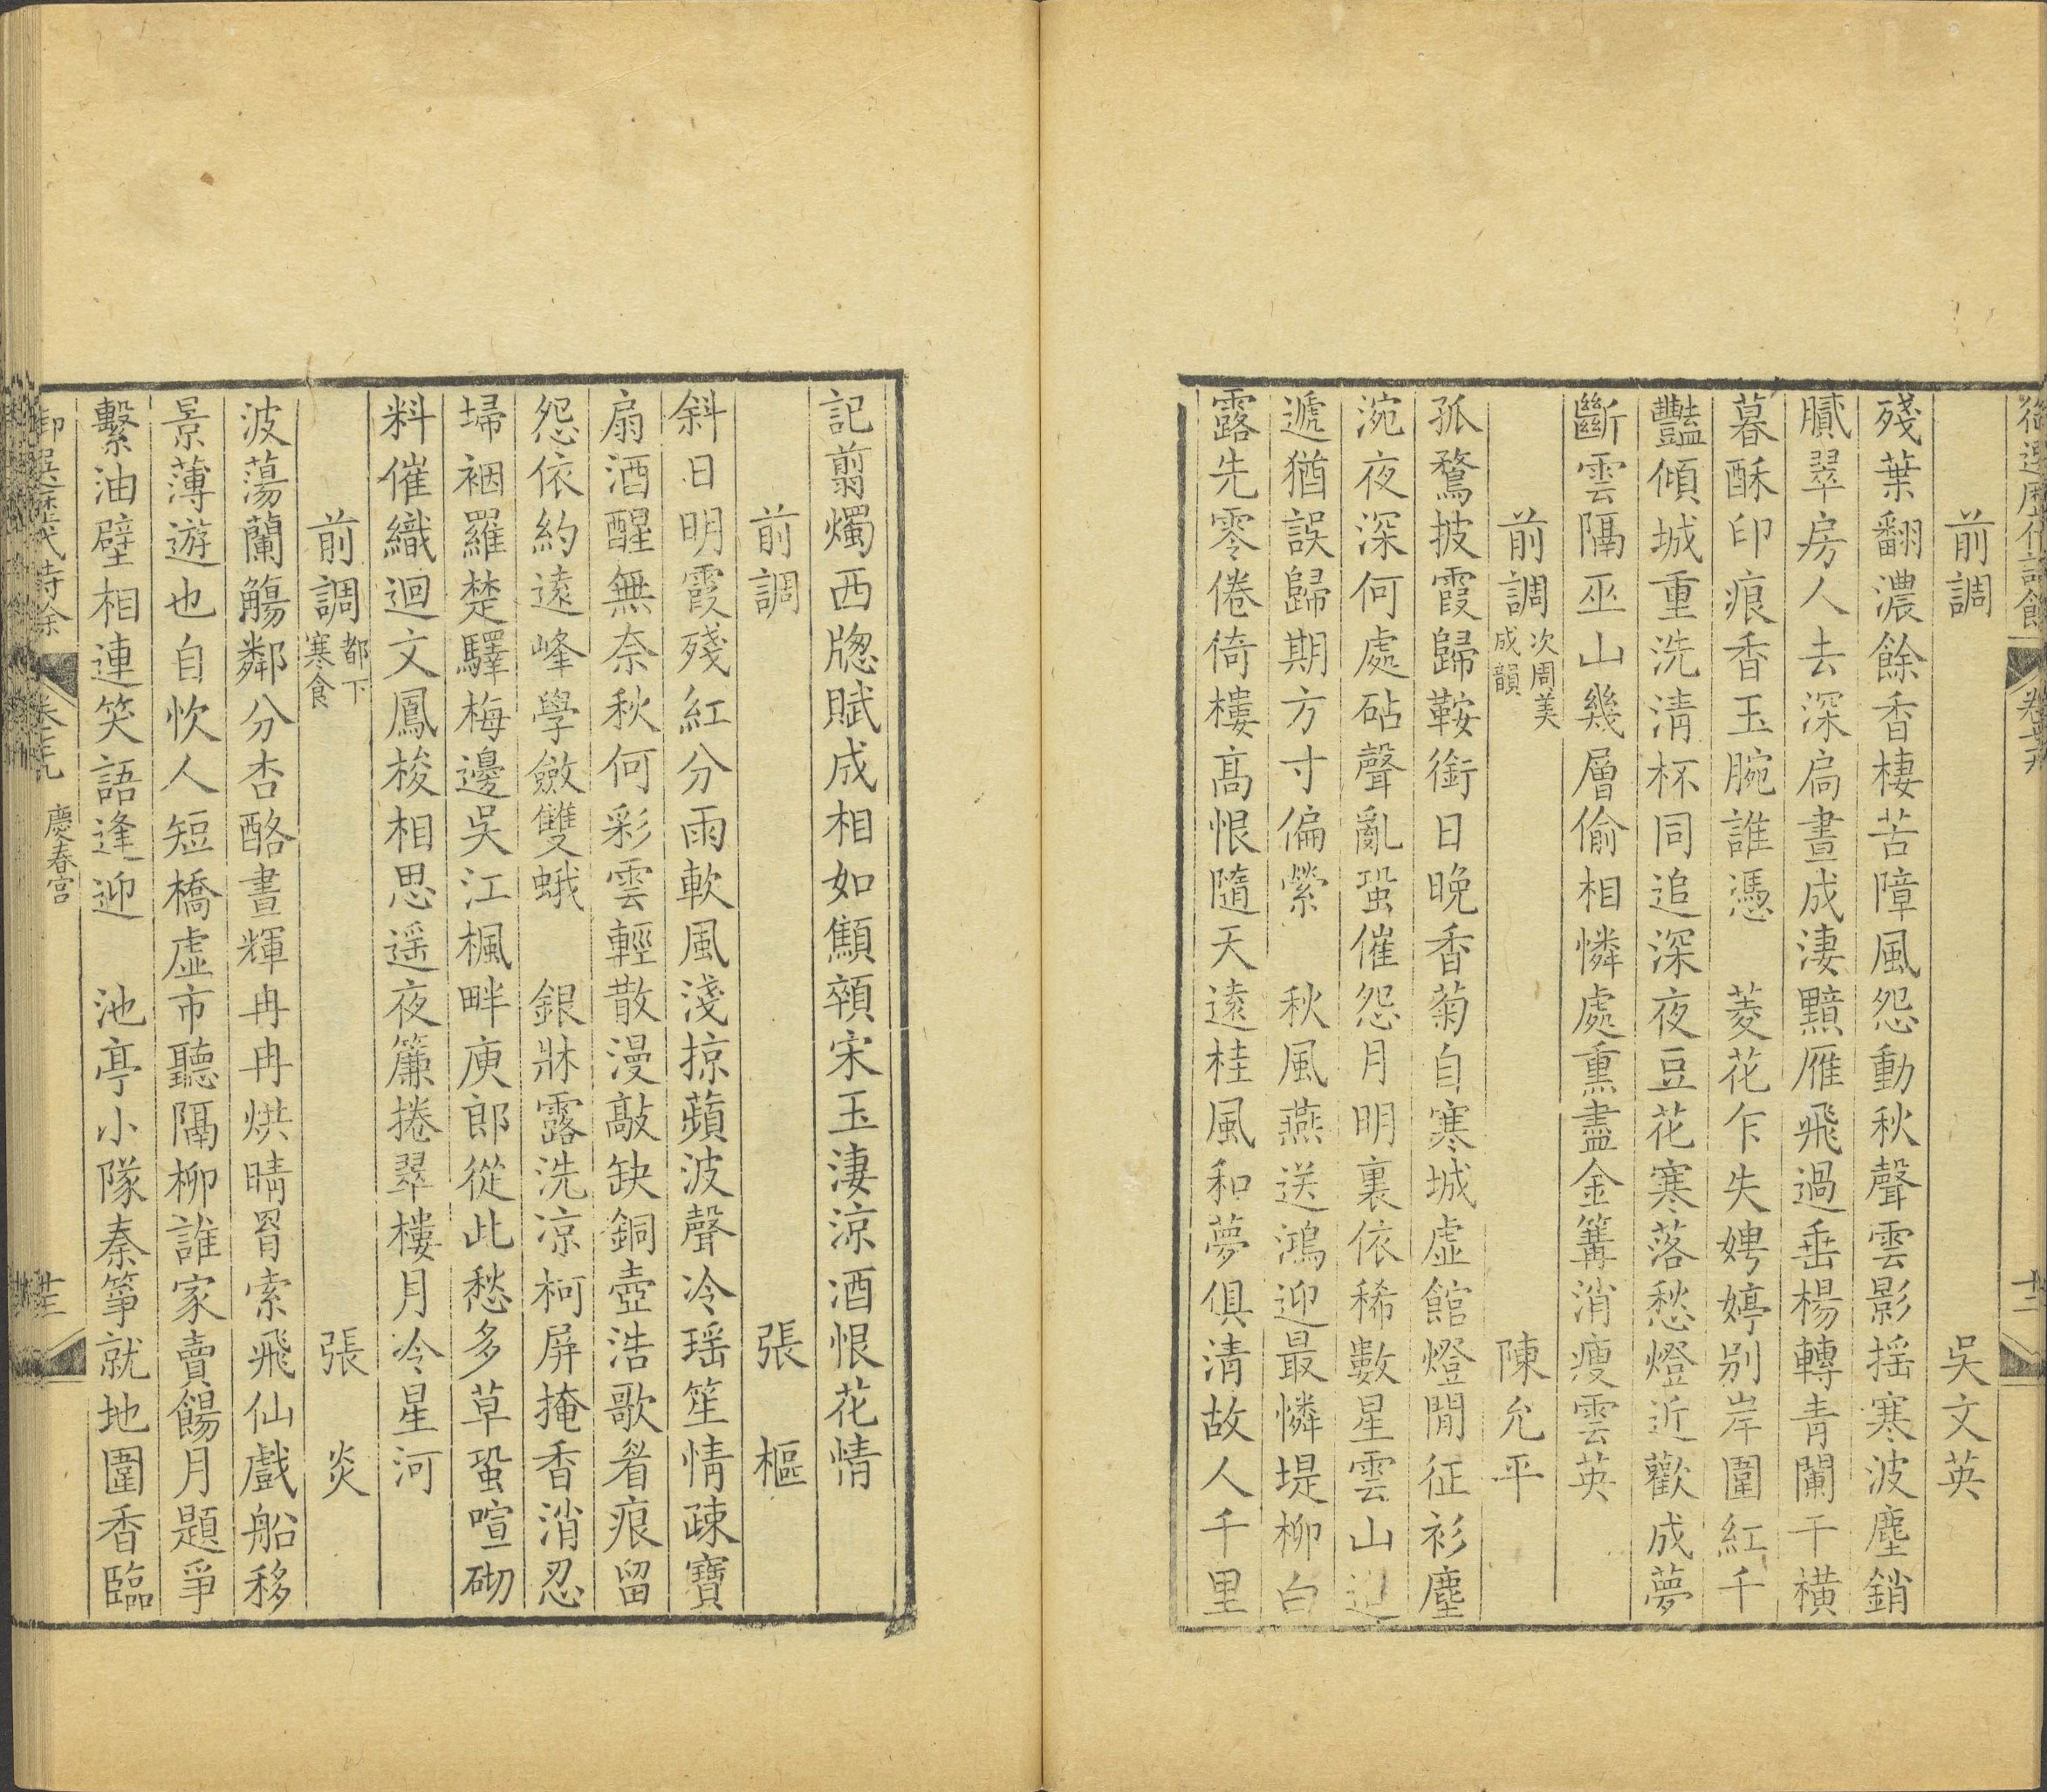 前調 吳文英
殘葉翻濃餘香棲苦障風怨動秋聲雲影搖寒波塵銷
膩翠房人去深扃晝成淒黯雁飛過垂楊轉青闌干橫
暮酥印痕香玉腕誰憑 菱花乍失娉婷別岸圍紅千
豔傾城重洗清杯同追深夜豆花寒落愁燈近歡成夢
斷雲隔巫山幾層偷相憐處熏盡金篝消瘦雲英
前調 次周美成韻 陳允平
孤鶩披霞歸鞍銜日晚香菊自寒城虛館燈閒征衫塵
涴夜深何處砧聲亂蛩催怨月明裏依稀數星雲山迢
遞猶誤歸期方寸偏縈 秋風燕送鴻迎最憐堤柳白
露先零倦倚樓高恨隨天遠桂風和夢俱清故人千里
記翦燭西牕賦成相如顦顇宋玉淒涼酒恨花情
前調 張樞
斜日明霞殘紅分雨軟風淺掠蘋波聲冷瑤笙情疎寶
扇酒醒無奈秋何彩雲輕散漫敲缺銅壺浩歌眉痕留
怨依約遠峰學斂雙蛾 銀牀露洗凉柯屏掩香消忍
埽裀羅楚驛梅邊吳江楓畔庾郎從此愁多草蛩喧砌
料催織迴文鳳梭相思遥夜簾捲翠樓月冷星河
前調 都下寒食 張炎
波蕩蘭觴鄰分杏酪晝輝冉冉烘晴罥索飛仙戲船移
景薄遊也自忺人短橋虛市聽隔柳誰家賣餳月題爭
繫油壁相連笑語逢迎 池亭小隊秦箏就地圍香臨
慶春宮